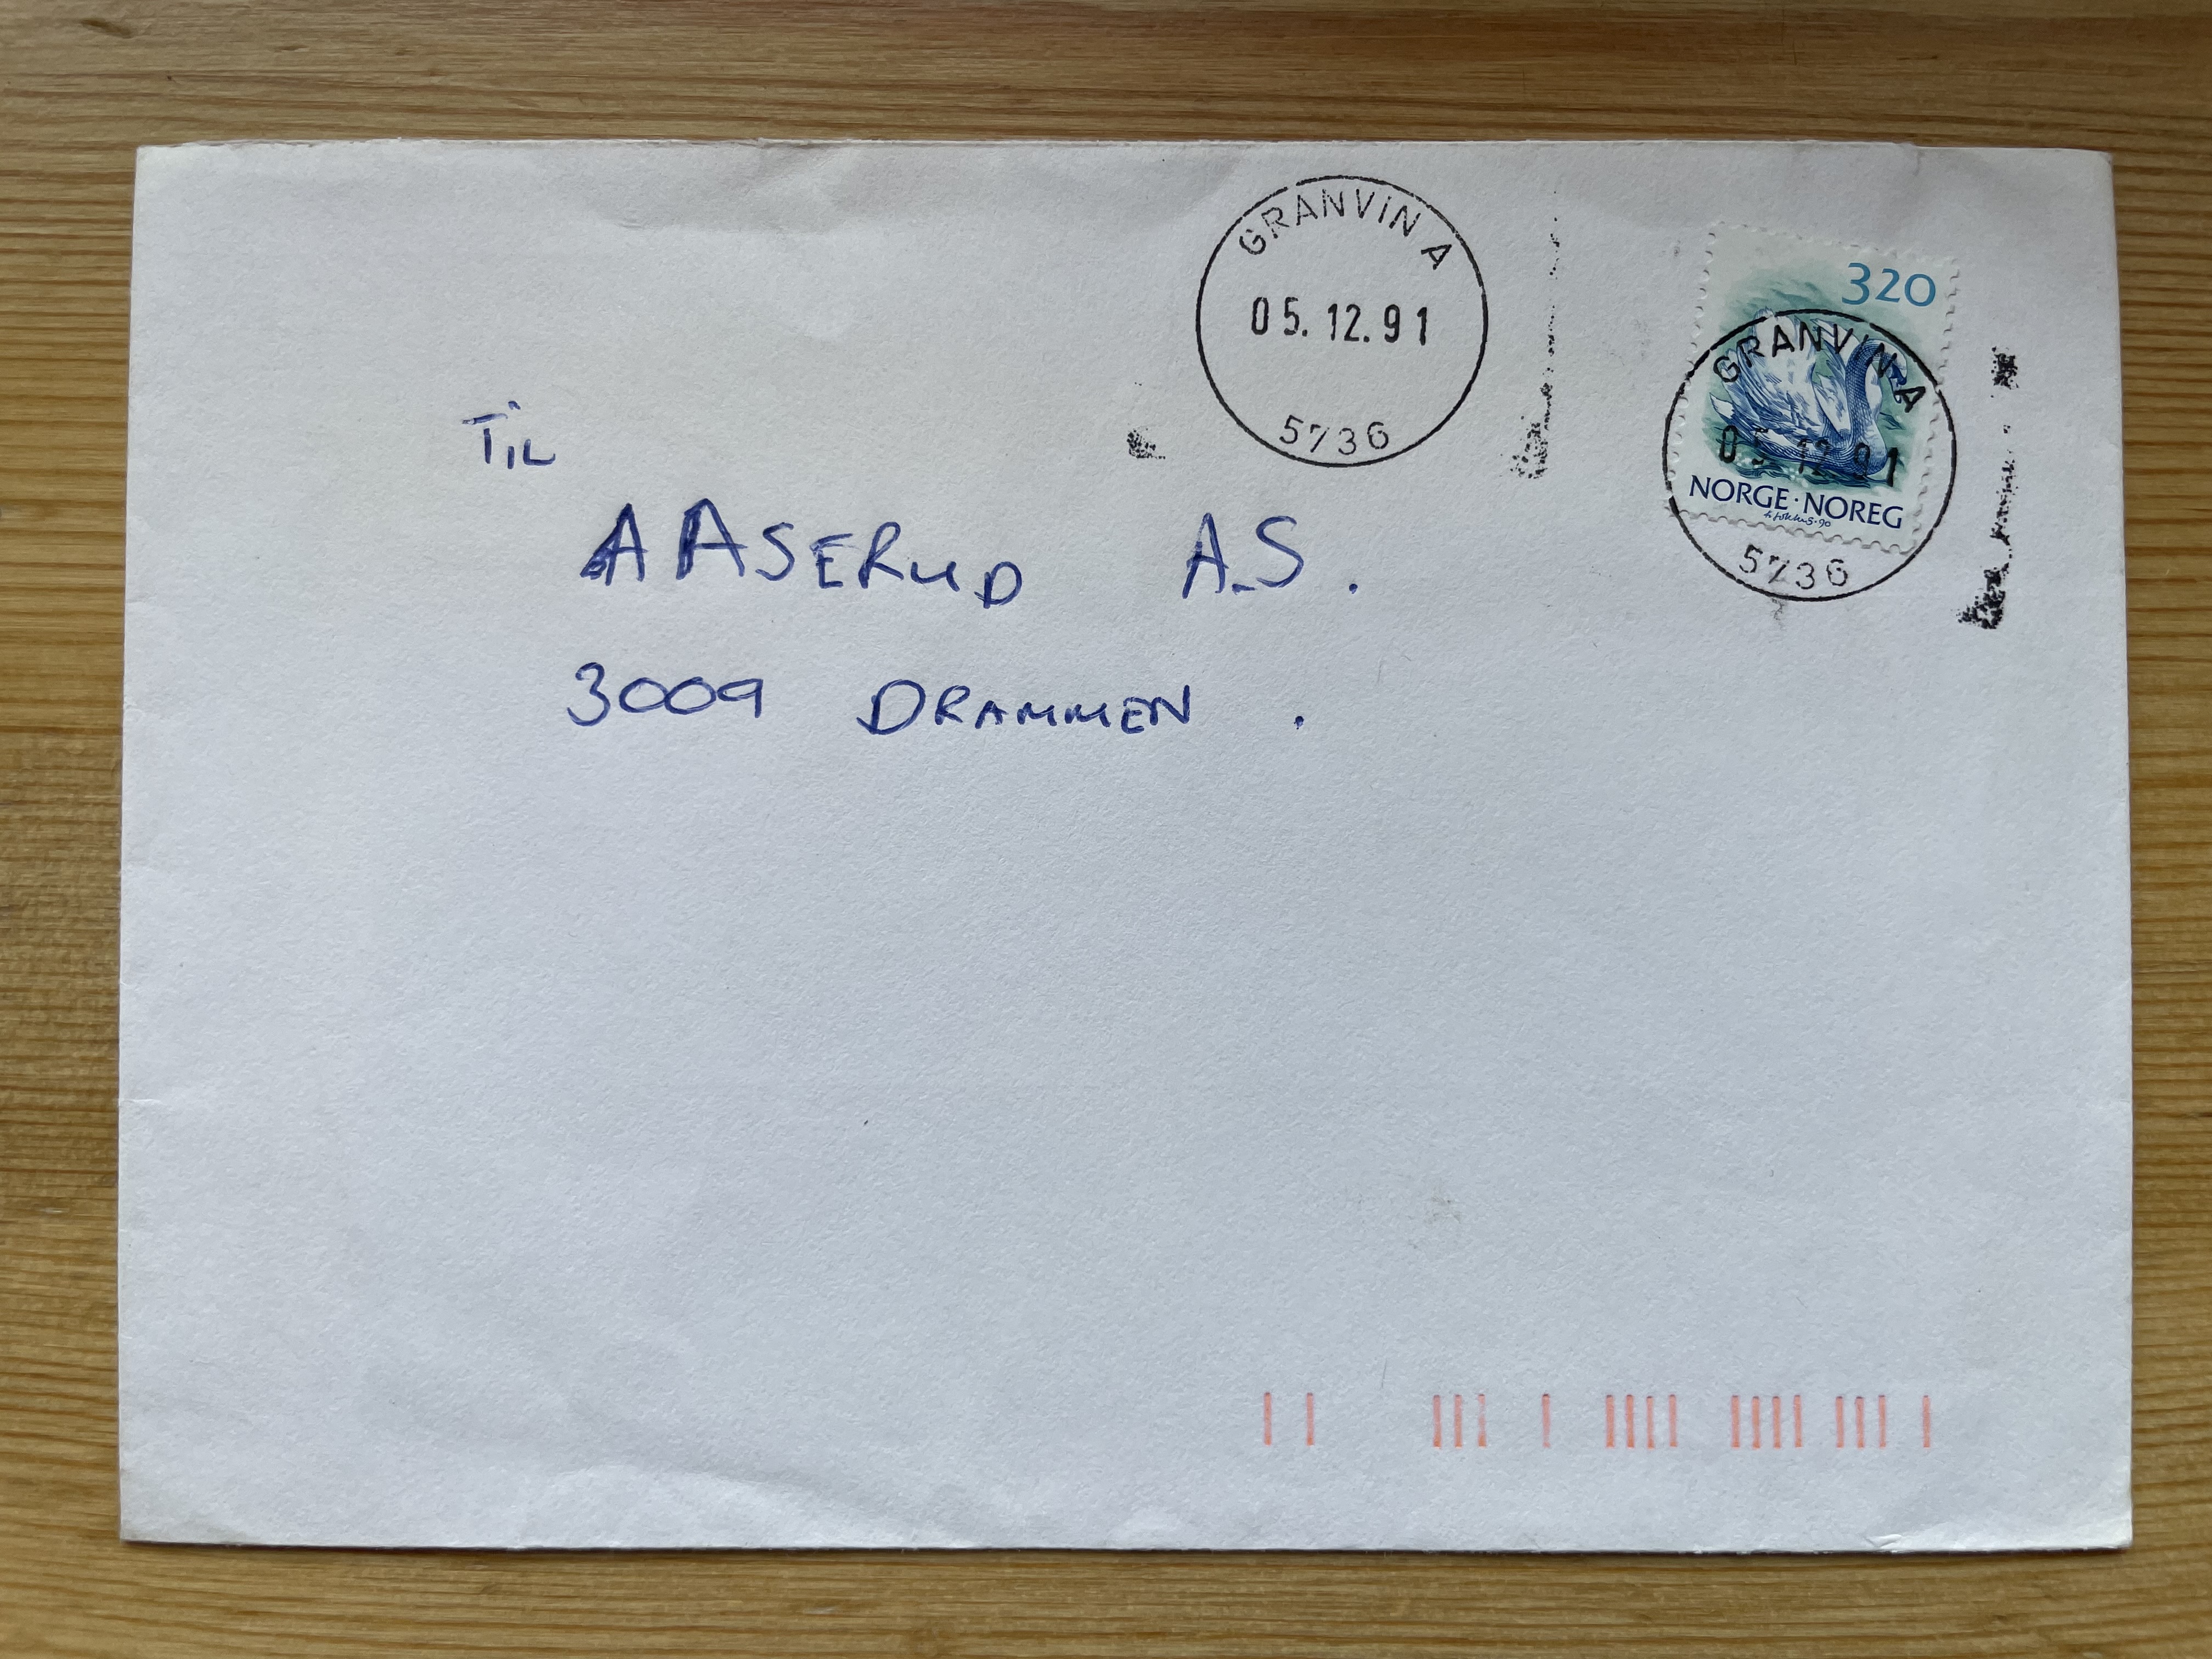 GRANVIN A
05.12.91
5736
320
GRANVIN A
05.12.91
NORGE·NOREG
5736
TiL
AASERUD A.S.
3009 DRAMMEN.